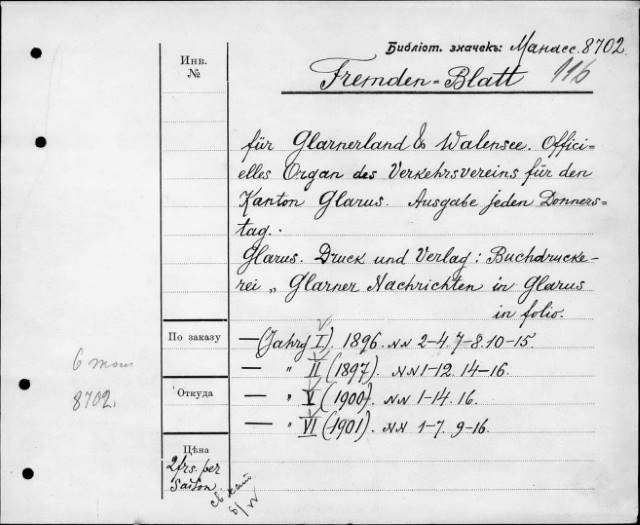 Библіот. значекъ: Манасс. 8702.
11б
Инв.
№
Fremden-Blatt
für Glarnerland & Walensee. Offici-
elles Organ des Verkehrsvereins für den
Kanton Glarus. Ausgabe jeden Donners-
tag.
Glarus. Druck und Verlag: Buchdrucke-
rei „ Glarner Nachrichten in Glarus
in folio.
По заказу
— (Jahrg I). 1896. NN 2-4. 7-8. 10-15.
— " II (1897). NN 1-12. 14-16.
Откуда
— " V (1900). NN 1-14. 16.
— " VI (1901). NN 1-7. 9-16.
6 том
8702.
Цѣна
2 frs. per
Saison.